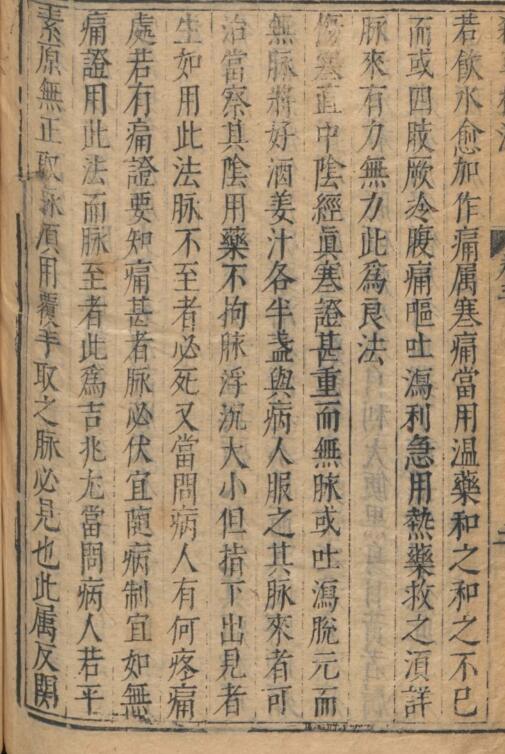 若飲水愈加作痛属寒痛當用溫藥和之和之不已
而或四肢厥冷腹痛嘔吐瀉利急用熱藥救之湏詳
脉來有力無力此爲良法
傷寒直中陰經眞寒證甚重而無脉或吐瀉脫元而
無脉將好酒姜汁各半盞與病人服之其脉來者可
治當察其陰用藥不拘脉浮沉大小但指下出見者
生如用此法脉不至者必死又當問病人有何疼痛
處若有痛證要知痛甚者脉必伏宜隨病制宜如無
痛證用此法而脉至者此爲吉兆尤當問病人若平
素原無正取脉湏用覆手取之脉必見也此属反関